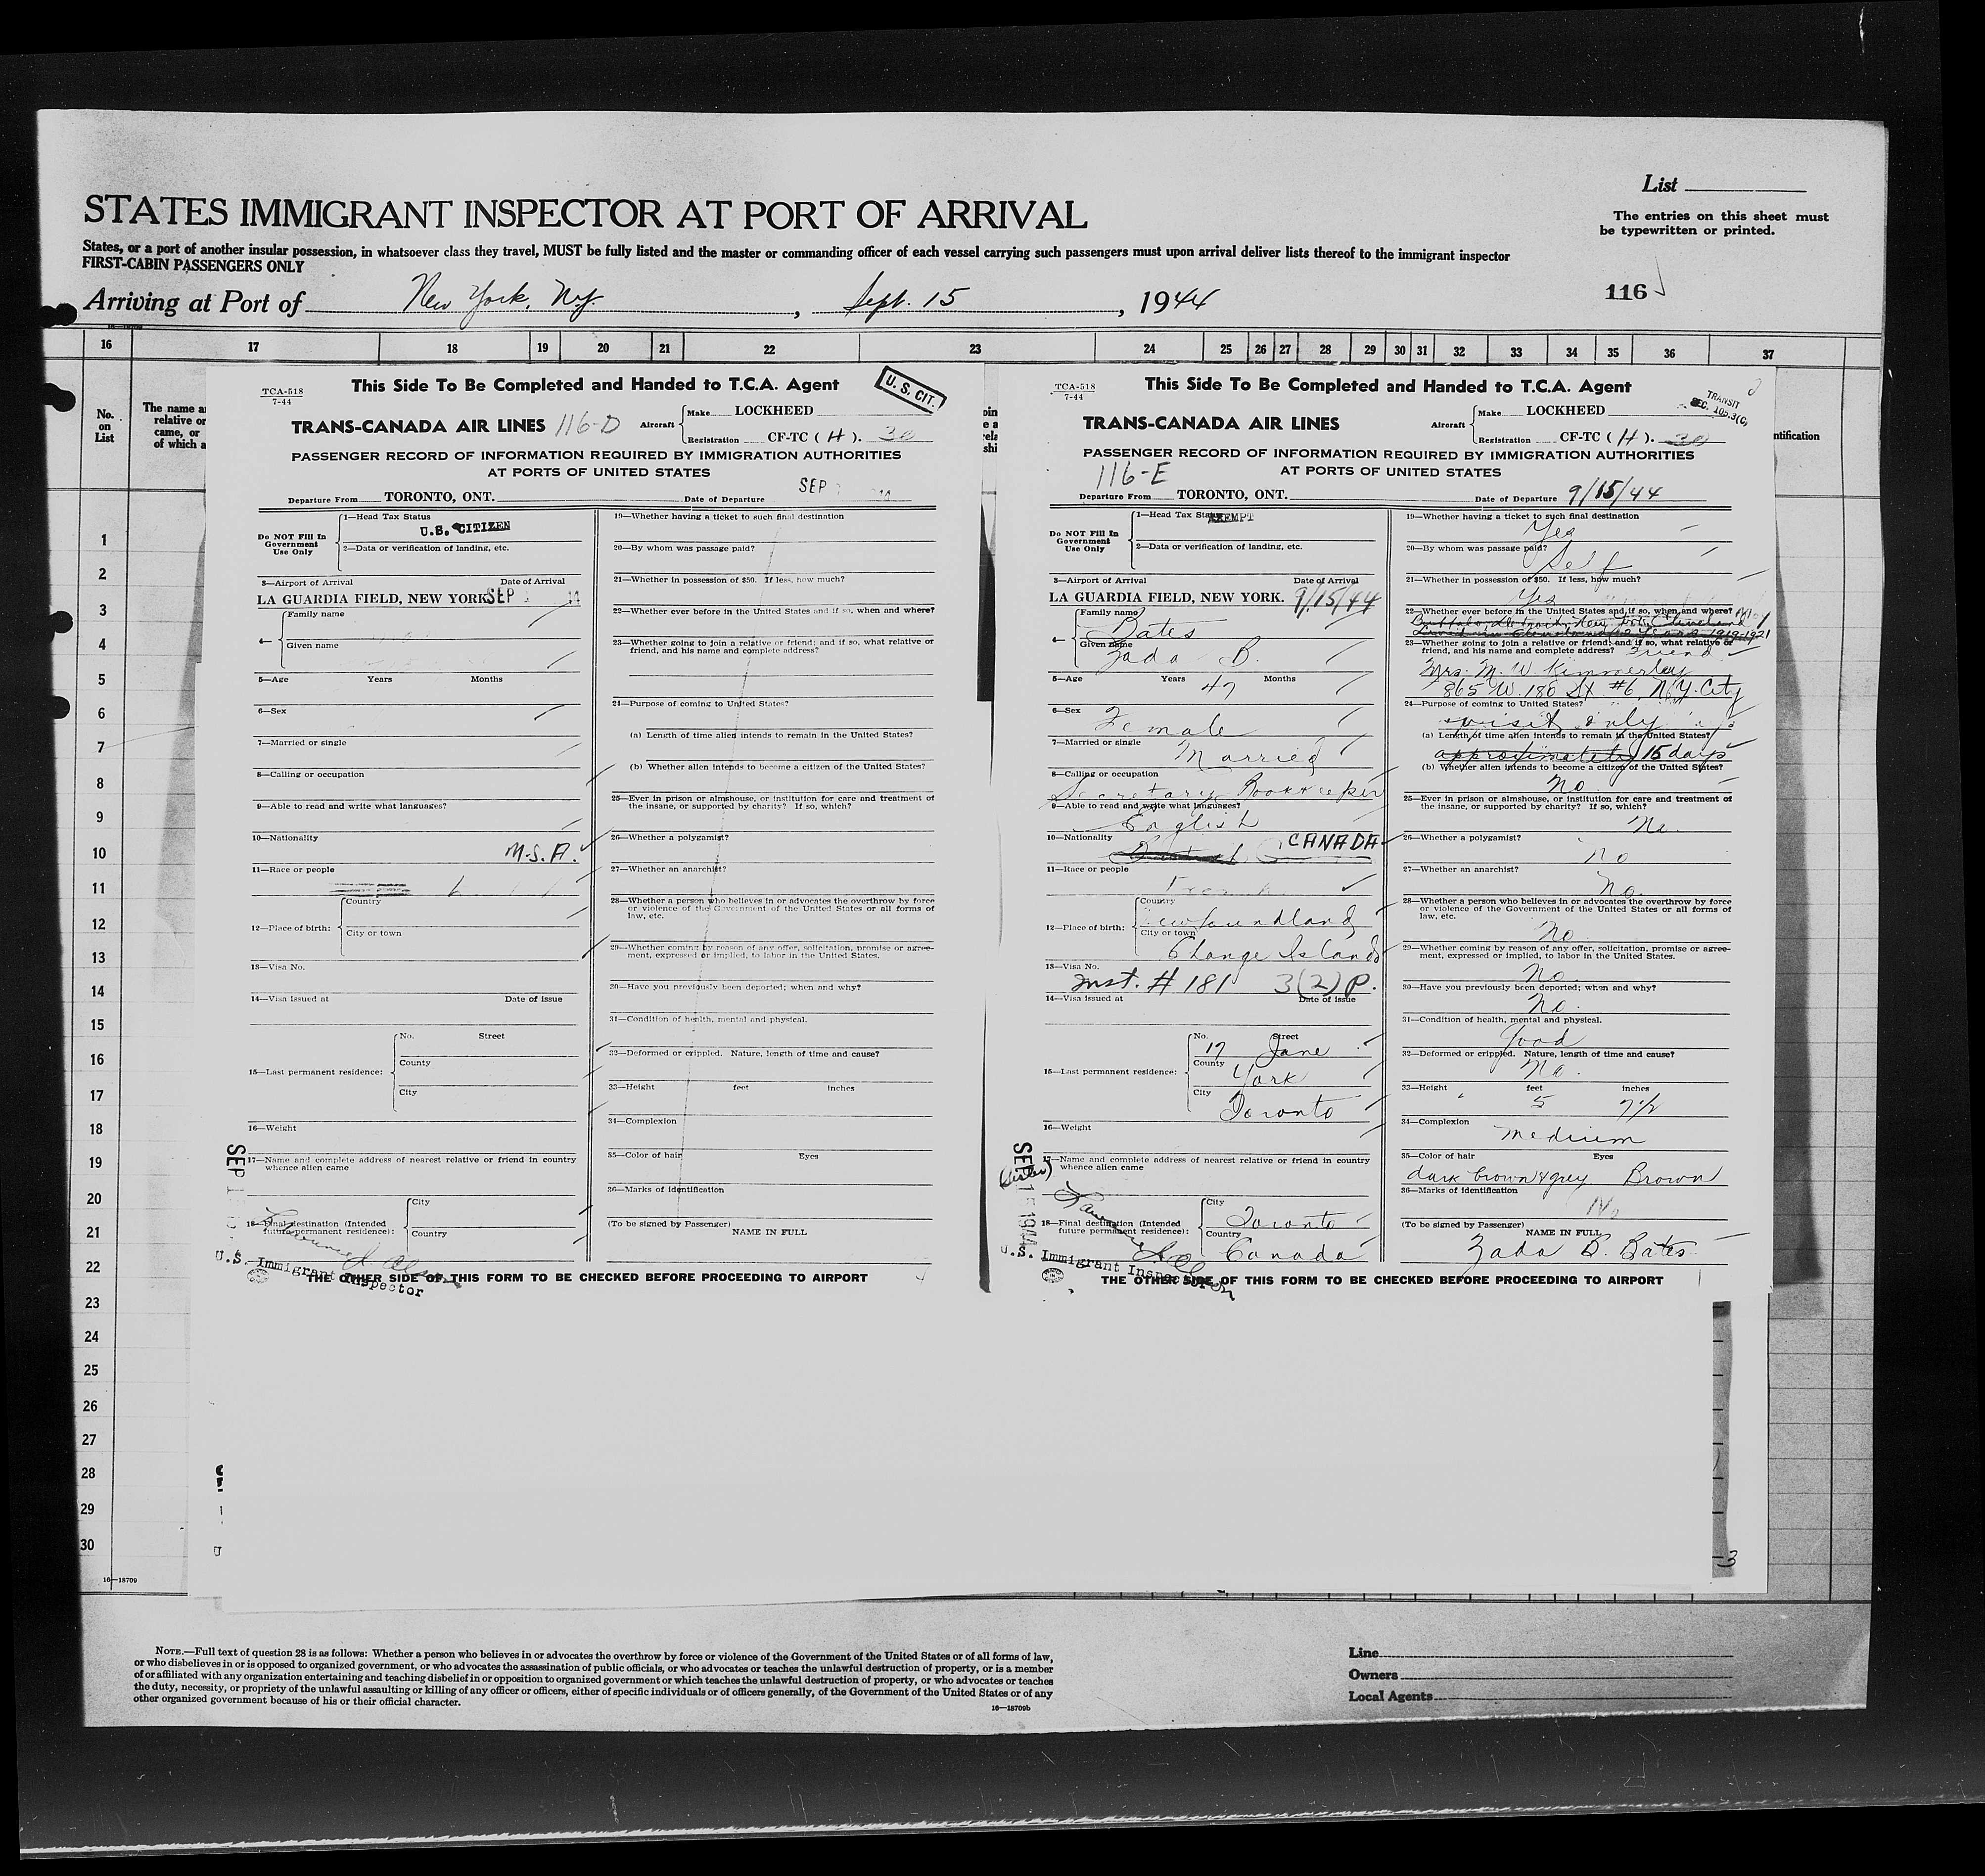 List
The entries on this sheet must
be typewritten or printed.
STATES IMMIGRANT INSPECTOR AT PORT OF ARRIVAL
States, or a port of another insular possession, in whatsoever class they travel, MUST be fully listed and the master or commanding officer of each vessel carrying such passengers must upon arrival deliver lists thereof to the immigrant inspector
FIRST-CABIN PASSENGERS ONLY
Arriving at Port of New York, N.Y. , Sept. 15 , 1944
116
16 17 18 19 20 21 22 23 24 25 26 27 28 29 30 31 32 33 34 35 36 37
No.
on
List
The name a
relative or
came, or
of which a
ntification
1
2
3
4
5
6
7
8
9
10
11
12
13
14
15
16
17
18
19
20
21
22
23
24
25
26
27
28
29
30
16—18709
TCA-518
7-44
This Side To Be Completed and Handed to T.C.A. Agent
U. S. CIT.
TRANS-CANADA AIR LINES 116-D
Aircraft
Make LOCKHEED
Registration CF-TC ( H ). 30
PASSENGER RECORD OF INFORMATION REQUIRED BY IMMIGRATION AUTHORITIES
AT PORTS OF UNITED STATES
Departure From TORONTO, ONT. Date of Departure SEP
Do NOT Fill In
Government
Use Only
1—Head Tax Status
U.S. CITIZEN
2—Data or verification of landing, etc.
3—Airport of Arrival Date of Arrival
LA GUARDIA FIELD, NEW YORK. SEP
4—
Family name
Given name
5—Age Years Months
6—Sex
7—Married or single
8—Calling or occupation
9—Able to read and write what languages?
10—Nationality
11—Race or people
12—Place of birth:
Country
City or town
13—Visa No.
14—Visa issued at Date of issue
15—Last permanent residence:
No. Street
County
City
16—Weight
17—Name and complete address of nearest relative or friend in country
whence alien came
18—Final destination (Intended
future permanent residence):
City
Country
U.S. Immigrant Inspector
19—Whether having a ticket to such final destination
20—By whom was passage paid?
21—Whether in possession of $50. If less, how much?
22—Whether ever before in the United States and if so, when and where?
23—Whether going to join a relative or friend; and if so, what relative or
friend, and his name and complete address?
24—Purpose of coming to United States?
(a) Length of time alien intends to remain in the United States?
(b) Whether alien intends to become a citizen of the United States?
25—Ever in prison or almshouse, or institution for care and treatment of
the insane, or supported by charity? If so, which?
26—Whether a polygamist?
27—Whether an anarchist?
28—Whether a person who believes in or advocates the overthrow by force
or violence of the Government of the United States or all forms of
law, etc.
29—Whether coming by reason of any offer, solicitation, promise or agree-
ment, expressed or implied, to labor in the United States.
30—Have you previously been deported; when and why?
31—Condition of health, mental and physical.
32—Deformed or crippled. Nature, length of time and cause?
33—Height feet inches
34—Complexion
35—Color of hair Eyes
36—Marks of identification
(To be signed by Passenger)
NAME IN FULL
THE OTHER SIDE OF THIS FORM TO BE CHECKED BEFORE PROCEEDING TO AIRPORT
TCA-518
7-44
This Side To Be Completed and Handed to T.C.A. Agent
TRANSIT
SEC. 105.3(C)
TRANS-CANADA AIR LINES
Aircraft
Make LOCKHEED
Registration CF-TC ( H ). 30
PASSENGER RECORD OF INFORMATION REQUIRED BY IMMIGRATION AUTHORITIES
AT PORTS OF UNITED STATES
116-E
Departure From TORONTO, ONT. Date of Departure 9/15/44
Do NOT Fill In
Government
Use Only
1—Head Tax Status EXEMPT
2—Data or verification of landing, etc.
3—Airport of Arrival Date of Arrival
LA GUARDIA FIELD, NEW YORK. 9/15/44
4—
Family name
Bates
Given name
Zada B.
5—Age Years Months
47
6—Sex
Female
7—Married or single
Married
8—Calling or occupation
Secretary Bookkeeper
9—Able to read and write what languages?
English
10—Nationality
CANADA
11—Race or people
12—Place of birth:
Country
Newfoundland
City or town
Change Islands
13—Visa No.
Inst. # 181 3(2) P.
14—Visa issued at Date of issue
15—Last permanent residence:
No. Street
17 Jane
County
York
City
Toronto
16—Weight
17—Name and complete address of nearest relative or friend in country
whence alien came
(Sister)
18—Final destination (Intended
future permanent residence):
City
Toronto
Country
Canada
SEP 15 1944
U.S. Immigrant Inspector
19—Whether having a ticket to such final destination
Yes
20—By whom was passage paid?
Self
21—Whether in possession of $50. If less, how much?
Yes
22—Whether ever before in the United States and if so, when and where?
Buffalo, Detroit, New York, Cleveland
1919-1921
23—Whether going to join a relative or friend; and if so, what relative or
friend, and his name and complete address? Friend
Mrs. M. W. Kimmerley
865 W. 180 St #6, N.Y. City
24—Purpose of coming to United States?
visit only
(a) Length of time alien intends to remain in the United States?
approximately 15 days
(b) Whether alien intends to become a citizen of the United States?
No
25—Ever in prison or almshouse, or institution for care and treatment of
the insane, or supported by charity? If so, which?
No.
26—Whether a polygamist?
No
27—Whether an anarchist?
No.
28—Whether a person who believes in or advocates the overthrow by force
or violence of the Government of the United States or all forms of
law, etc.
No.
29—Whether coming by reason of any offer, solicitation, promise or agree-
ment, expressed or implied, to labor in the United States.
No.
30—Have you previously been deported; when and why?
No
31—Condition of health, mental and physical.
Good
32—Deformed or crippled. Nature, length of time and cause?
No.
33—Height feet inches
5 7½
34—Complexion
Medium
35—Color of hair Eyes
dark brown & grey Brown
36—Marks of identification
No
(To be signed by Passenger)
NAME IN FULL
Zada B. Bates
THE OTHER SIDE OF THIS FORM TO BE CHECKED BEFORE PROCEEDING TO AIRPORT
NOTE.—Full text of question 28 is as follows: Whether a person who believes in or advocates the overthrow by force or violence of the Government of the United States or of all forms of law,
or who disbelieves in or is opposed to organized government, or who advocates the assassination of public officials, or who advocates or teaches the unlawful destruction of property, or is a member
of or affiliated with any organization entertaining and teaching disbelief in or opposition to organized government or which teaches the unlawful destruction of property, or who advocates or teaches
the duty, necessity, or propriety of the unlawful assaulting or killing of any officer or officers, either of specific individuals or of officers generally, of the Government of the United States or of any
other organized government because of his or their official character.
16—18709b
Line
Owners
Local Agents